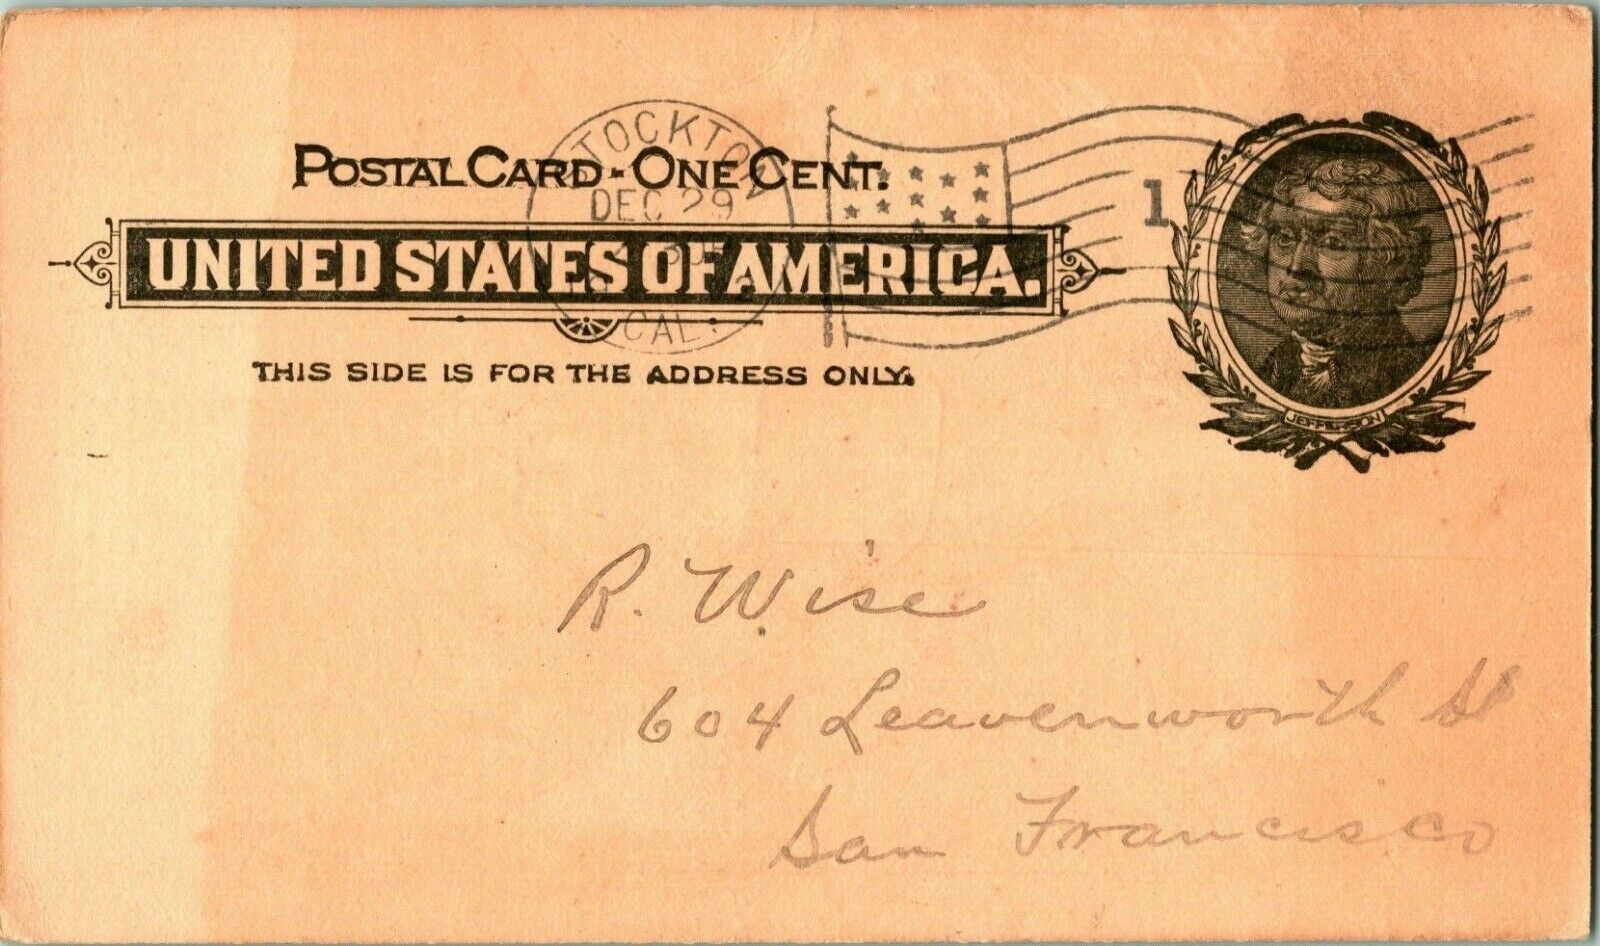 STOCKTON
DEC 29
CAL.
1
POSTAL CARD - ONE CENT.
UNITED STATES OF AMERICA.
THIS SIDE IS FOR THE ADDRESS ONLY.
JEFFERSON
R. Wise
604 Leavenworth St
San Francisco